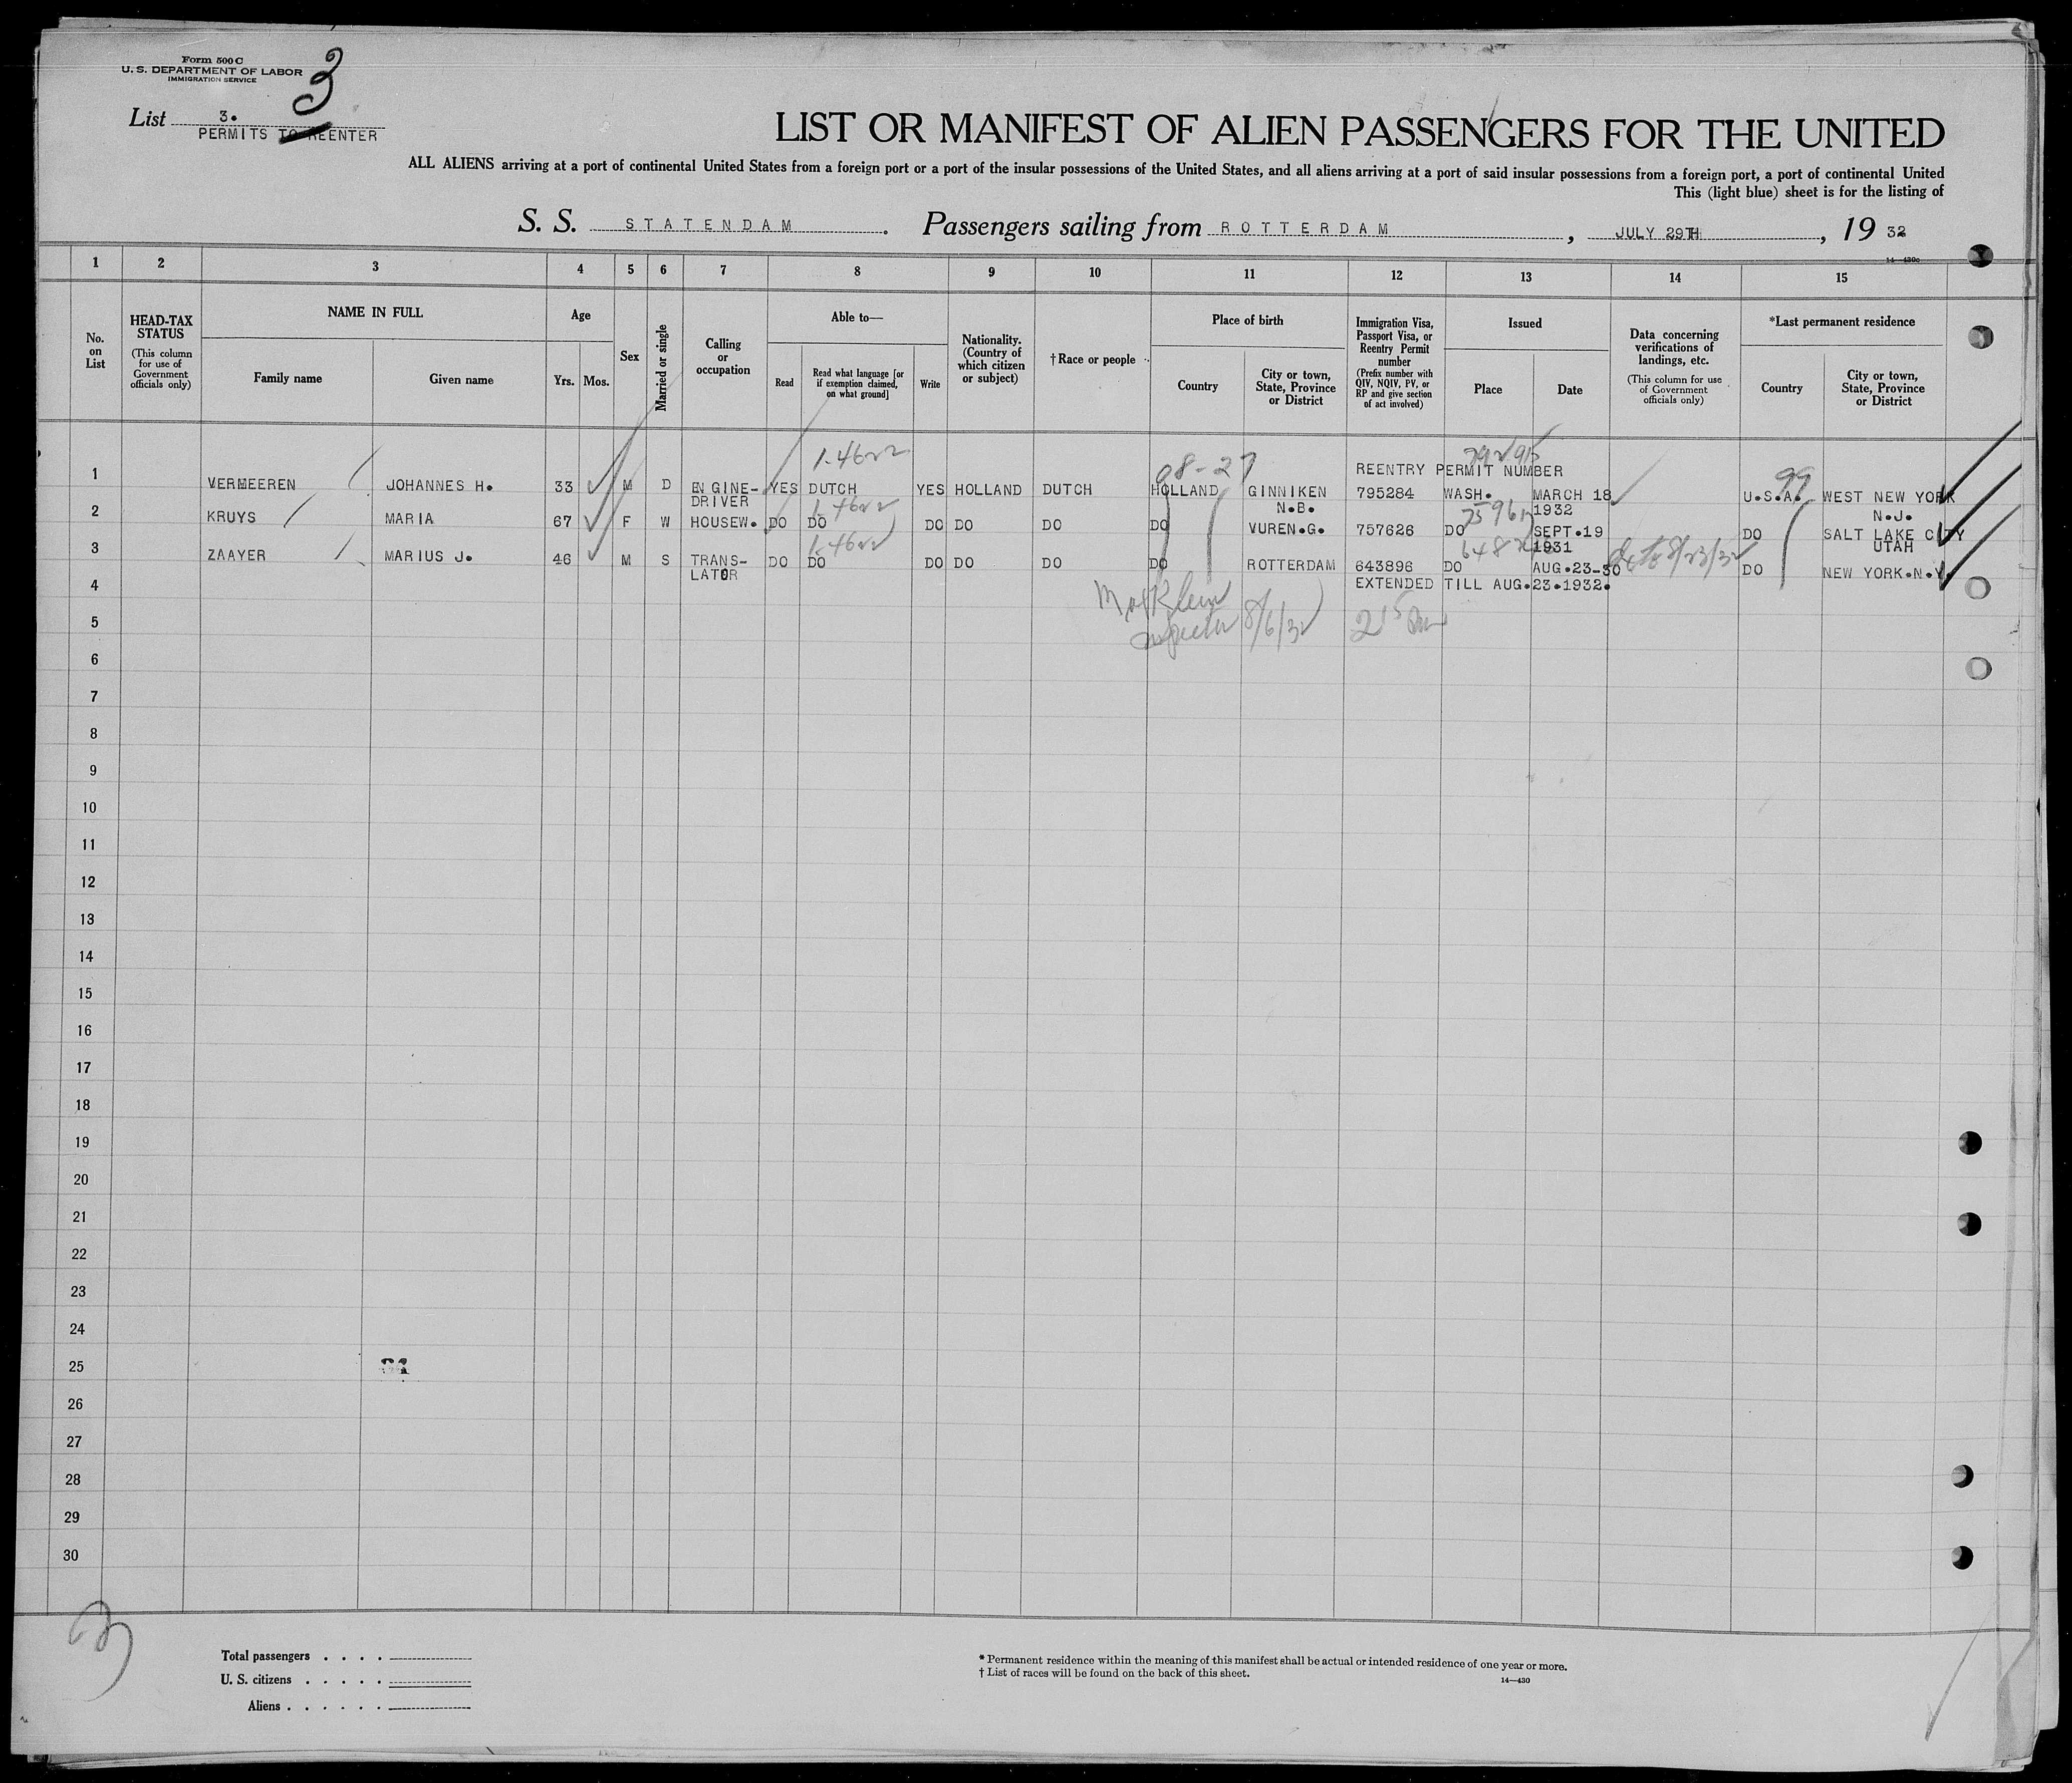 Form 500 C
U. S. DEPARTMENT OF LABOR
IMMIGRATION SERVICE
3
List 3.
PERMITS TO REENTER
LIST OR MANIFEST OF ALIEN PASSENGERS FOR THE UNITED
ALL ALIENS arriving at a port of continental United States from a foreign port or a port of the insular possessions of the United States, and all aliens arriving at a port of said insular possessions from a foreign port, a port of continental United
This (light blue) sheet is for the listing of
S. S. STATENDAM. Passengers sailing from ROTTERDAM, JULY 29TH, 19 32
14—430c
1 2 3 4 5 6 7 8 9 10 11 12 13 14 15
No. on List
HEAD-TAX STATUS (This column for use of Government officials only)
NAME IN FULL
Family name
Given name
Age
Yrs. Mos.
Sex
Married or single
Calling or occupation
Able to—
Read
Read what language [or if exemption claimed, on what ground]
Write
Nationality. (Country of which citizen or subject)
†Race or people
Place of birth
Country
City or town, State, Province or District
Immigration Visa, Passport Visa, or Reentry Permit number (Prefix number with QIV, NQIV, PV, or RP and give section of act involved)
Issued
Place
Date
Data concerning verifications of landings, etc. (This column for use of Government officials only)
*Last permanent residence
Country
City or town, State, Province or District
08-27
REENTRY PERMIT NUMBER
99
1 VERMEEREN JOHANNES H. 33 M D ENGINE-DRIVER YES DUTCH YES HOLLAND DUTCH HOLLAND GINNIKEN N.B. 795284 WASH. MARCH 18 1932 U.S.A. WEST NEW YORK N.J.
2 KRUYS MARIA 67 F W HOUSEW. DO DO DO DO DO DO VUREN.G. 757626 DO SEPT.19 1931 DO SALT LAKE CITY UTAH
3 ZAAYER MARIUS J. 46 M S TRANS-LATOR DO DO DO DO DO DO ROTTERDAM 643896 DO AUG.23-30 8/23/32 DO NEW YORK.N.Y.
4 EXTENDED TILL AUG.23.1932.
5 8/6/32
6
7
8
9
10
11
12
13
14
15
16
17
18
19
20
21
22
23
24
25
26
27
28
29
30
Total passengers
U. S. citizens
Aliens
* Permanent residence within the meaning of this manifest shall be actual or intended residence of one year or more.
† List of races will be found on the back of this sheet.
14—430